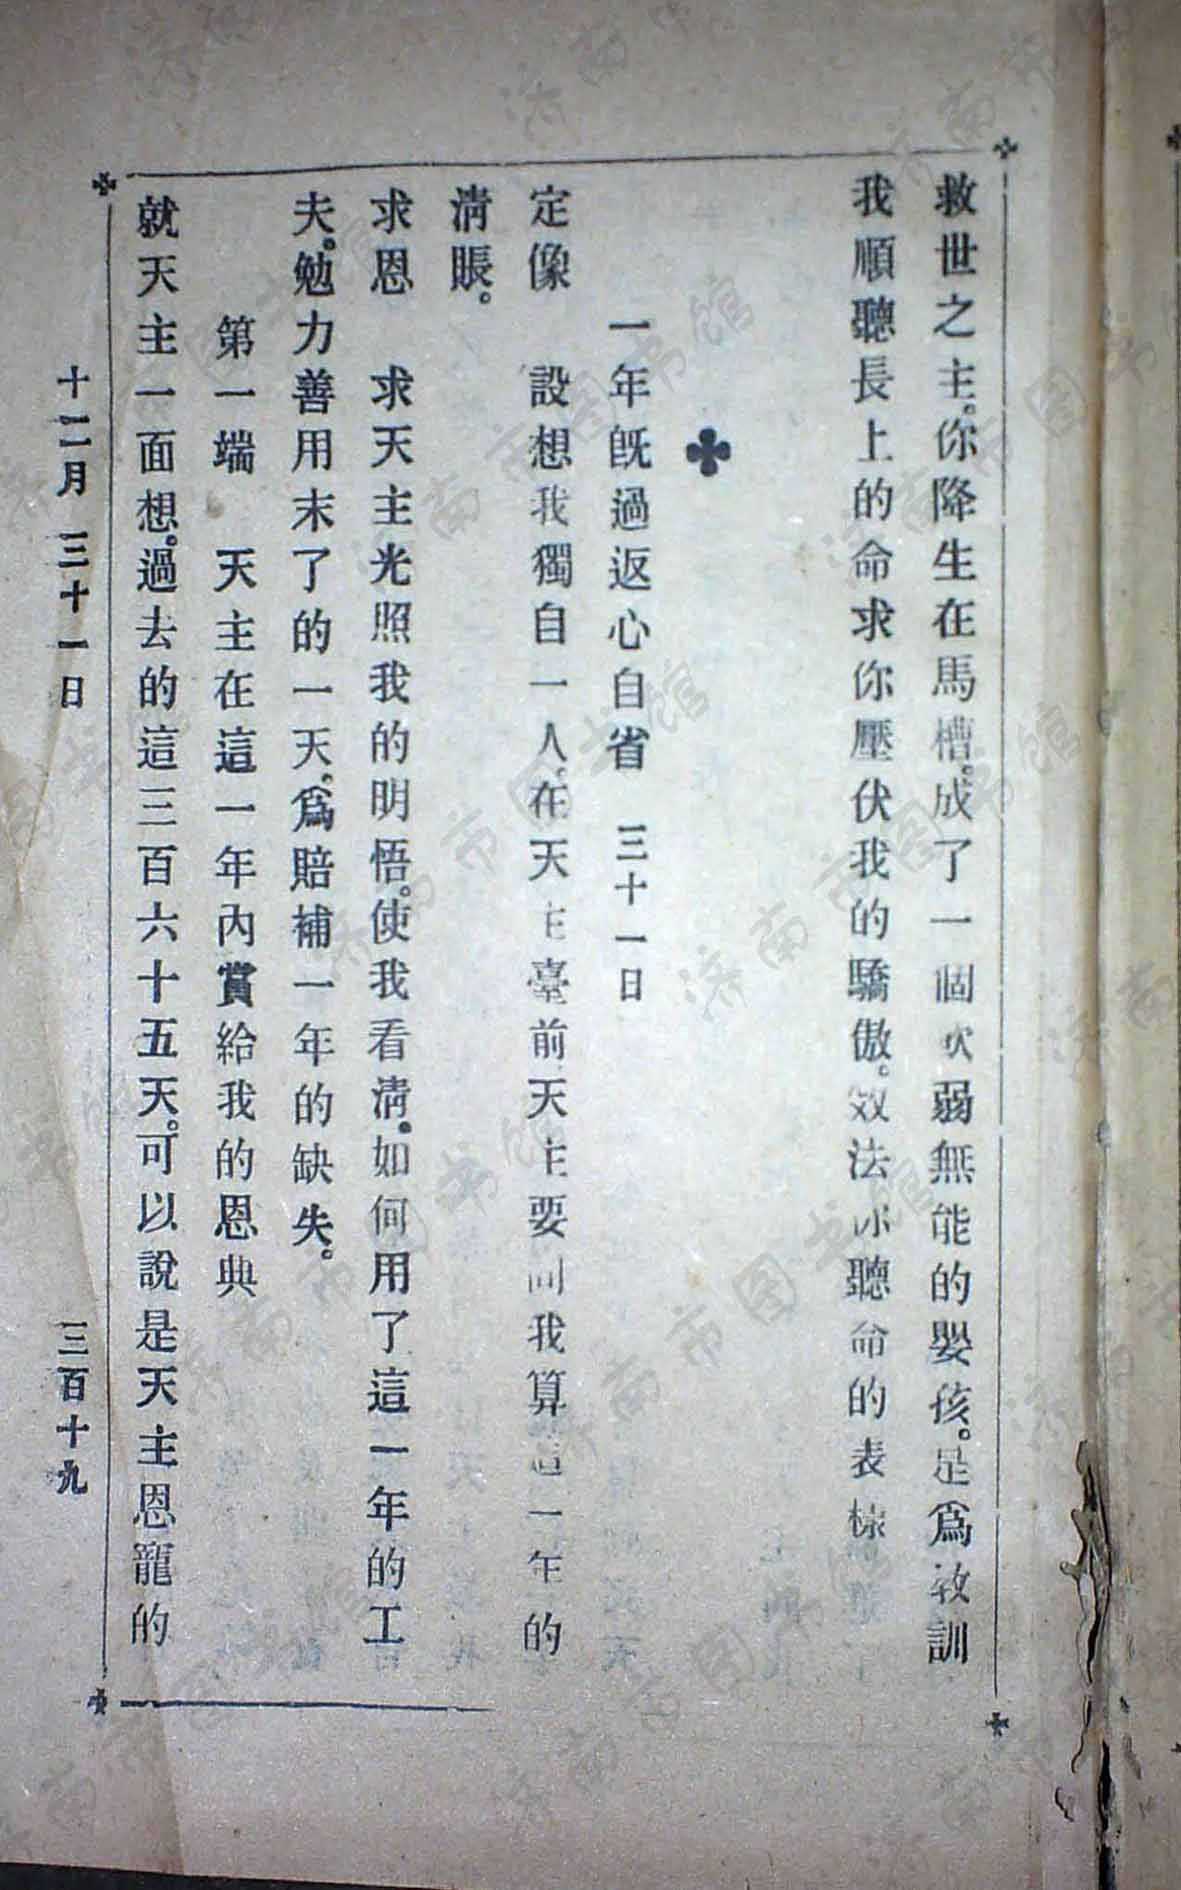 救世之主。你降生在馬槽。成了一個軟弱無能的嬰孩。是爲教訓
我順聽長上的命求你壓伏我的驕傲。效法你聽命的表樣
一年旣過返心自省 三十一日
定像 設想我獨自一人。在天主臺前天主要同我算這一年的
淸賬。
求恩 求天主光照我的明悟。使我看淸。如何用了這一年的工
夫。勉力善用末了的一天。爲賠補一年的缺失。
第一端 天主在這一年內賞給我的恩典
就天主一面想。過去的這三百六十五天。可以說是天主恩寵的
十二月 三十一日 三百十九
济南市图书馆